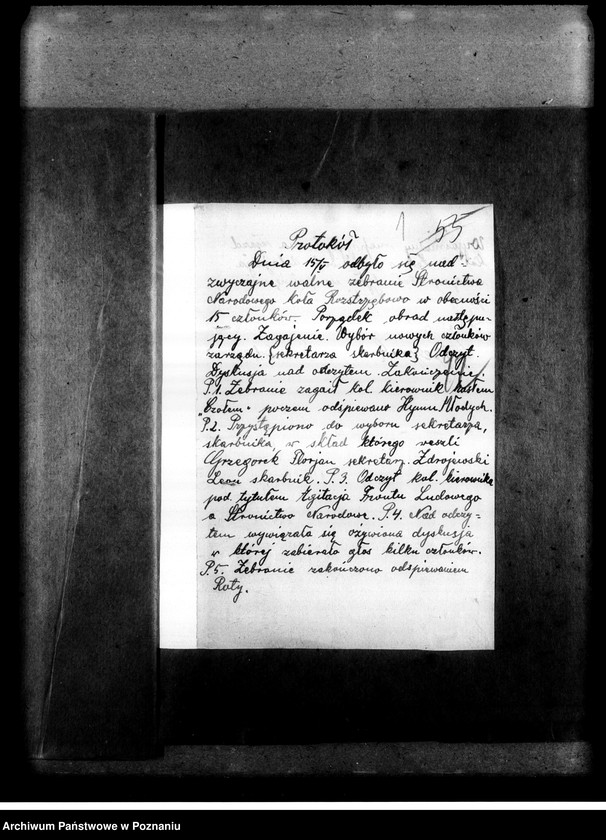 1 55
Protokół
Dnia 15/V odbyło się nad
zwyczajne walne zebranie Stronictwa
Narodowego koła Rozstrzębowo w obecności
15 członków. Porządek obrad następu-
jący. Zagajenie. Wybór nowych członków
zarządu. {sekretarza skarbnika} Odczyt.
Dyskusja nad odczytem. Zakończenie.
P.1. Zebranie zagaił kol. kierownik hasłem
"Czołem" poczem odśpiewano Hymn Młodych.
P.2. Przystąpiono do wyboru sekretarza,
skarbnika, w skład którego weszli
Grzegorek Florjan sekretarz. Zdrojewski
Leon skarbnik. P.3. Odczyt kol. kierownika
pod tytułem Agitacja Frontu Ludowego
a Stronictwo Narodowe. P.4. Nad odczy-
tem wywiązała się ożywiona dyskusja
w której zabierało głos kilku członków.
P.5. Zebranie zakończono odśpiewaniem
Roty.
Archiwum Państwowe w Poznaniu